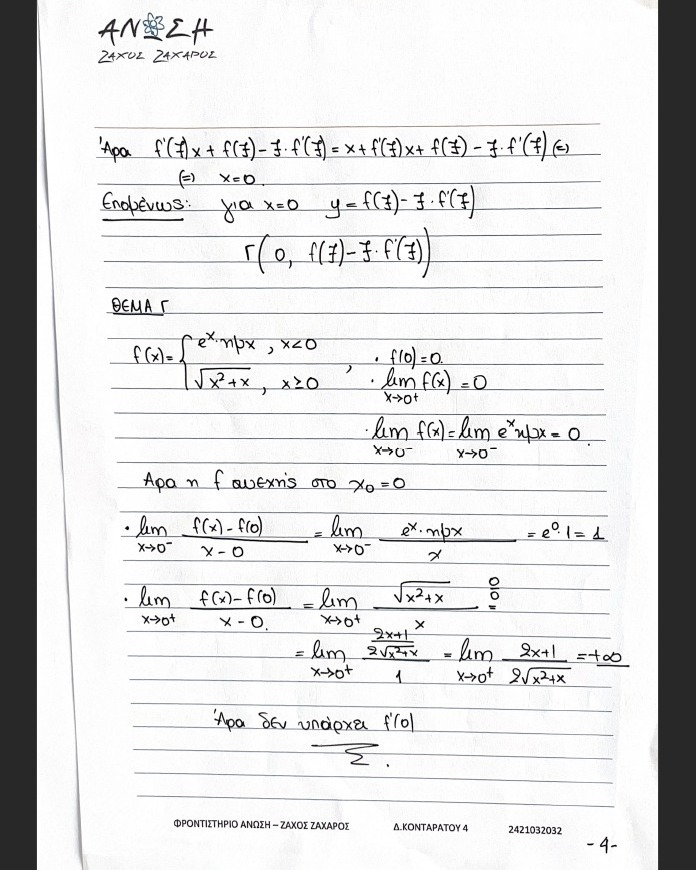 ΑΝΩΣΗ
ΖΑΧΟΣ ΖΑΧΑΡΟΣ
Άρα f'(ξ)x + f(ξ) - ξ·f'(ξ) = x + f'(ξ)x + f(ξ) - ξ·f'(ξ) (=)
(=) x=0.
Επομένως: για x=0 y = f(ξ) - ξ·f'(ξ)
Γ(0, f(ξ) - ξ·f'(ξ))
ΘΕΜΑ Γ
f(x) = { e^x·ημx , x<0
√(x²+x) , x≥0 , · f(0)=0.
· lim x→0⁺ f(x) = 0
· lim x→0⁻ f(x) = lim x→0⁻ e^x ημx = 0.
Άρα η f συνεχής στο x₀=0
· lim x→0⁻ (f(x) - f(0))/(x - 0) = lim x→0⁻ (e^x·ημx)/x = e⁰·1 = 1
· lim x→0⁺ (f(x) - f(0))/(x - 0) = lim x→0⁺ √(x²+x)/x 0/0 =
= lim x→0⁺ ((2x+1)/(2√(x²+x)))/1 = lim x→0⁺ (2x+1)/(2√(x²+x)) = +∞
Άρα δεν υπάρχει f'(0)
ΦΡΟΝΤΙΣΤΗΡΙΟ ΑΝΩΣΗ – ΖΑΧΟΣ ΖΑΧΑΡΟΣ Δ.ΚΟΝΤΑΡΑΤΟΥ 4 2421032032
-4-